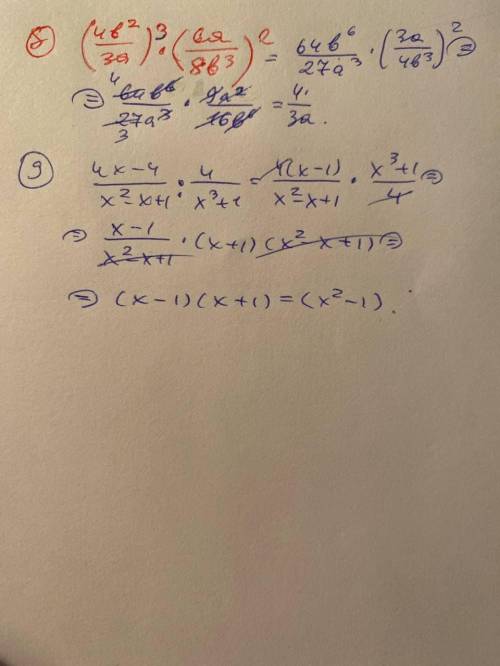 8 (4b²/3a)³ · (6a/8b³)² = 64b⁶/27a³ · (3a/4b³)² =
= 4 64b⁶/27a³ 3 · 9a²/16b⁶ = 4/3a.
9 4x-4/x²-x+1 : 4/x³+1 = 4(x-1)/x²-x+1 · x³+1/4 =
= x-1/x²-x+1 · (x+1)(x²-x+1) =
= (x-1)(x+1) = (x²-1).